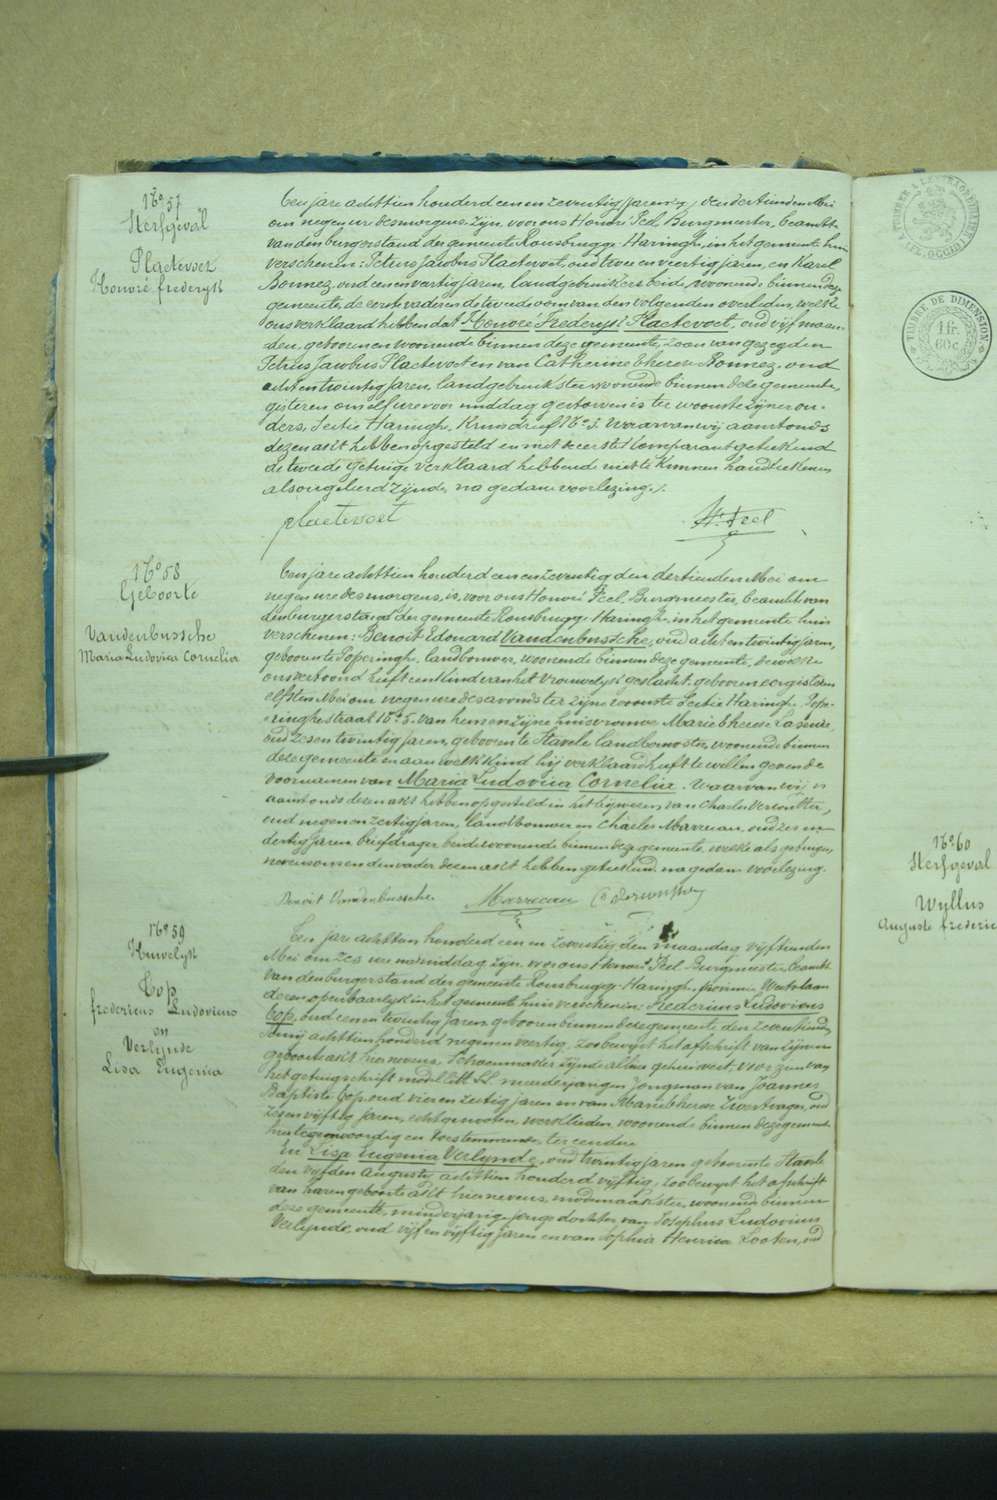 N.° 57
Sterfgeval
Plaetevoet
Honoré frederyk
Een jare achttien honderd een en zeventig den dertienden Mei
om negen ure des morgens, zijn voor ons Honoré Peel Burgmeester, beambte
van den burgerstand der gemeente Rousbrugge Haringhe, in het gemeente huis
verschenen: Petrus Jacobus Plaetevoet, oud twee en veertig jaren, en Karel
Bonnez, oud een en veertig jaren, landgebruikers beide, woonende binnen deze
gemeente, de eerste vader en de tweede oom van den volgenden overleden, welke
ons verklaard hebben dat Honoré Frederijk Plaetevoet, oud vijf maan-
den, geboren en woonende binnen deze gemeente, zoon van gezegden
Petrus Jacobus Plaetevoet en van Catherine Therese Bonnez, oud
acht en twintig jaren, landgebruikster woonende binnen deze gemeente,
gisteren om elf ure voor middag gestorven is ter woonste zijner ou-
ders, Sectie Haringhe, N.° 5. Waarvan wij aanstonds
dezen akt hebben opgesteld en met de eerste Comparant geteekend
de tweede getuige verklaard hebbende niet te kunnen handteekenen
als ongeleerd zijnde, na gedane voorlezing.
plaetevoet
H. Peel
N.° 58
Geboorte
Vandenbussche
Maria Ludovica Cornelia
Een jare achttien honderd een en zeventig den dertienden Mei om
negen ure des morgens, is, voor ons Honoré Peel, Burgmeester, beambte van
den burgerstand der gemeente Rousbrugge Haringhe, in het gemeente huis
verschenen: Benoit Edouard Vandenbussche, oud acht en twintig jaren,
geboren te Poperinghe, landbouwer, woonende binnen deze gemeente, dewelke
ons vertoond heeft een kind van het vrouwelijk geslacht, geboren eergisteren
elfsten Mei om negen ure des avonds ter zijne woonste Sectie Haringhe, Pope-
ringhestraat N.° 5. van hem en zijne huisvrouwe Marie Therese
oud zes en twintig jaren, geboren te Stavele landbouwster, woonende binnen
deze gemeente en aan welk kind hij verklaard heeft te willen geven de
voornamen van Maria Ludovica Cornelia. Waarvan wij
aanstonds dezen akt hebben opgesteld in het bijwezen van Charles
oud negen en zestig jaren, landbouwer en Charles Marreeau, oud zes en
dertig jaren, briefdrager beide woonende binnen deze gemeente, welke als getuigen,
nevens ons en den vader dezen akt hebben geteekend, na gedane voorlezing.
Benoit Vandenbussche
Marreeau
N.° 59
Huwelijk
Cop
fredericus Ludovicus
en
Verlynde
Lisa Eugenia
Een jare achttien honderd een en zeventig den maandag vijftienden
Mei om zes ure namiddag, zijn voor ons Honoré Peel Burgmeester, beambte
van den burgerstand der gemeente Rousbrugge Haringhe, provincie Westvlaan
deren openbaarlijk in het gemeente huis verschenen: Fredericus Ludovicus
Cop, oud een en twintig jaren, geboren binnen deze gemeente den zeventienden
achttien honderd negen en veertig, zoo bewijst het afschrift van zijn
geboorte akt hier nevens, Schoenmaker zijnde alhier gehuisvest, voorzien van
het getuigschrift model Litt. LL. meerderjarigen Jongman van Joannes
Baptiste Cop, oud vier en zestig jaren en van Marie Therese oud
zes en vijftig jaren, echtgenooten, werklieden, woonende binnen deze gemeente
hier tegenwoordig en toestemmende, ter eendere
En Lisa Eugenia Verlynde, oud twintig jaren geboren te Stavele
den vijfden Augusty achttien honderd vijftig, zoo bewijst het afschrift
van haren geboorte akt hier nevens, modemaakster, woonende binnen
deze gemeente, minderjarige jonge dochter, van Josephus Ludovicus
Verlynde, oud vijf en vijftig jaren en van Sophia Henrica Looten, oud
TIMBRE DE DIMENSION
1 fr.
60 c.
N.° 60
Sterfgeval
Wyllus
Auguste frederic